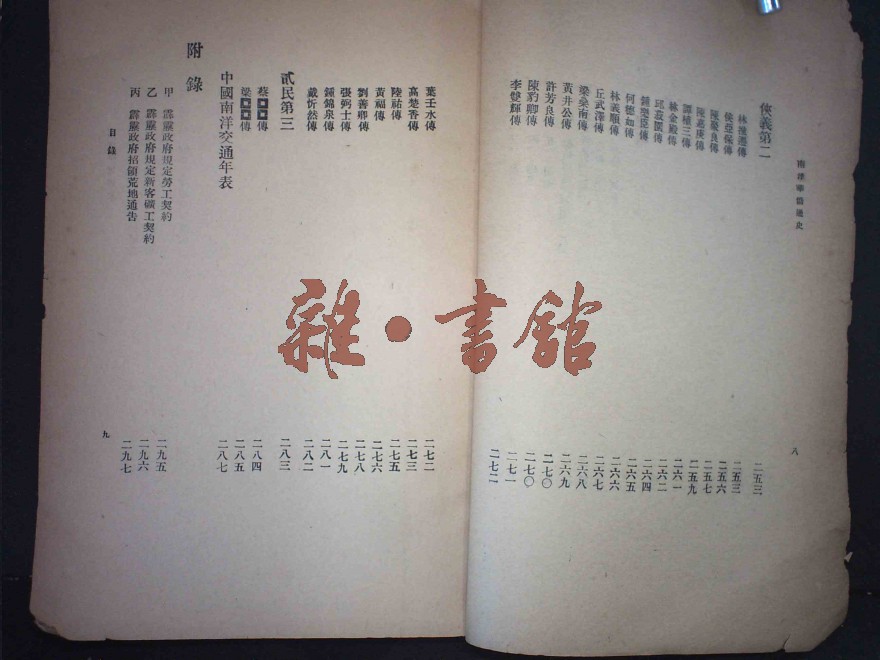 南洋華僑通史
八
俠義第二 二五三
林推遷傳 二五三
侯亞保傳 二五六
陳嘉庚傳 二五七
譚積三傳 二五九
林金殿傳 二六一
何德如傳 二六五
林義順傳 二六六
丘武澤傳 二六七
梁燊南傳 二六八
黃井公傳 二六九
許芳良傳 二七〇
陳豹卿傳 二七〇
李雙輝傳 二七一
二七二
葉壬水傳 二七二
高楚香傳 二七三
陸祐傳 二七五
黃福傳 二七六
劉善卿傳 二七八
張弼士傳 二七九
鍾錦泉傳 二八一
戴忻然傳 二八二
貳民第三 二八三
蔡□□傳 二八四
梁□□傳 二八五
中國南洋交通年表 二八七
附錄
甲 霹靂政府規定勞工契約 二九五
乙 霹靂政府規定新客礦工契約 二九六
丙 霹靂政府招領荒地通告 二九七
目錄
九
雜·書館